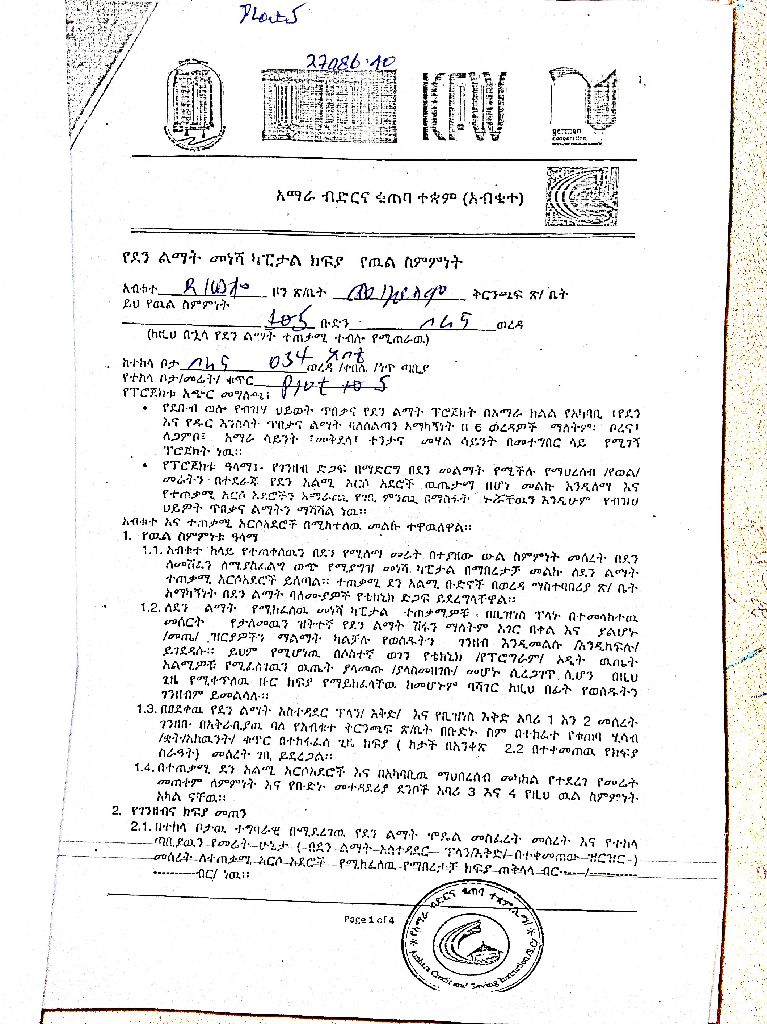 27086.10
KFW
german
cooperation
አማራ ብድርና ቁጠባ ተቋም (አብቁተ)
የደን ልማት መነሻ ካፒታል ክፍያ የዉል ስምምነት
አብቁተ ዞን ጽ/ቤት ቅርንጫፍ ጽ/ ቤት
ይህ የዉል ስምምነት
105 ቡድን ወረዳ
(ከዚህ በኋላ የደን ልማት ተጠታሚ ተብሎ የሚጠራዉ)
ከተከላ ቦታ 034 ወረዳ /ቀበሌ /ነጥ ጣቢያ
የተከላ ቦታ/መሬት/ ቁጥር Plot 10 5
የፕሮጀክቱ አጭር መግለጫ፤
• የደቡብ ወሎ የብዝሃ ህይወት ጥበቃና የደን ልማት ፕሮጀክት በአማራ ክልል የአካባቢ ፣የደን
እና የዱር እንስሳት ጥበቃና ልማት ባለስልጣን አማካኝነት በ 6 ወረዳዎች ማለትም፡ ቦረና፣
ለጋምቦ፣ አማራ ሳይንት ፣መቅደላ፣ ተንታና መሃል ሳይንት በመተግበር ላይ የሚገኝ
ፕሮጀክት ነዉ።
• የፕሮጀክቱ ዓላማ፤- የገንዘብ ድጋፍ በማድርግ በደን መልማት የሚችሉ የማህረሰብ /የወል/
መሬትን በተደራጁ የደን አልሚ አርሶ አደሮች ዉጤታማ በሆነ መልኩ እንዲለማ እና
የተጠቃሚ አርሶ አደሮችን አማራጪ የገቢ ምንጪ በማስፋት ኑሯቸዉን እንዲሁም የብዝሀ
ህይዎት ጥበቃና ልማትን ማሻሻል ነዉ።
አብቁተ እና ተጠቃሚ አርሶአደሮች በሚከተለዉ መልኩ ተዋዉለዋል።
1. የዉል ስምምነቱ ዓላማ
1.1. አብቁተ ከላይ የተጠቀሰዉን በደን የሚለማ መሬት በተያዘው ውል ስምምነት መሰረት በደን
ለመሸፈን ለሚያስፈልግ ወጭ የሚያግዝ መነሻ ካፒታል በማበረታቻ መልክ ለደን ልማት
ተጠቃሚ አርሶአደሮች ይሰጣል። ተጠቃሚ ደን አልሚ ቡድኖች በወረዳ ማስተባበሪያ ጽ/ ቤት
አማካኝነት በደን ልማት ባለሙያዎች የቴክኒክ ድጋፍ ይደረግላቸዋል።
1.2. ለደን ልማት የሚከፈለዉ መነሻ ካፒታል ተጠቃሚዎቹ በቢዝነስ ፕላኑ በተመላከተዉ
መሰርት የታለመዉን ዝቅተኛ የደን ልማት ሽፋን ማለትም አገር በቀል እና ያልሆኑ
/መጤ/ ዝርያዎችን ማልማት ካልቻሉ የወሰዱትን ገንዘብ እንዲመልሱ /እንዲከፍሉ/
ይገደዳሉ። ይህም የሚሆነዉ በሶስተኛ ወገን የቴክኒክ /የፕሮግራም/ ኦዲት ዉጤት
አልሚዎቹ የሚፈለገዉን ዉጤት ያላመጡ /ያላስመዘገቡ/ መሆኑ ሲረጋገጥ ሲሆን በዚህ
ጊዜ የሚቀጥለዉ ዙር ክፍያ የማይከፈላቸዉ ከመሆኑም ባሻገር ከዚህ በፊት የወሰዱትን
ገንዘብም ይመልሳሉ።
1.3. በፀደቀዉ የደን ልማት አስተዳደር ፕላን/ እቅድ/ እና የቢዝነስ እቅድ አባሪ 1 እን 2 መሰረት
ገንዘቡ በአቅራቢያዉ ባለ የአብቁተ ቅርንጫፍ ጽ/ቤት በቡድኑ ስም በተከፈተ የቁጠባ ሂሳብ
/ቋት/አካዉንት/ ቁጥር በተከፋፈለ ጊዜ ክፍያ ( ከታች በአንቀጽ 2.2 በተቀመጠዉ የክፍያ
ስራዓት) መሰረት ገቢ ይደረጋል።
1.4. በተጠቃሚ ደን አልሚ አርሶአደሮች እና በአካባቢዉ ማህበረሰብ መካከል የተደረገ የመሬት
መጠቀም ስምምነት እና የቡድኑ መተዳደሪያ ደንቦች አባሪ 3 እና 4 የዚህ ዉል ስምምነት
አካል ናቸዉ።
2. የገንዘብና ክፍያ መጠን
2.1. በተከላ ቦታዉ ተግባራዊ በሚደረገዉ የደን ልማት ሞዴል መስፈረት መሰረት እና የተከላ
ጣቢያዉን የመሬት ሁኔታ ( በደን ልማት አስተዳደር ፕላን/እቅድ/ በተቀመጠው ዝርዝር )
መሰረት ለተጠቃሚ አርሶ አደሮች የሚከፈለዉ የማበረታቻ ክፍያ ጠቅላላ ብር-----/----------
----------ብር/ ነዉ።
Page 1 of 4
የአማራ ብድርና ቁጠባ ተቋም
Amhara Credit and Saving Institution S.C